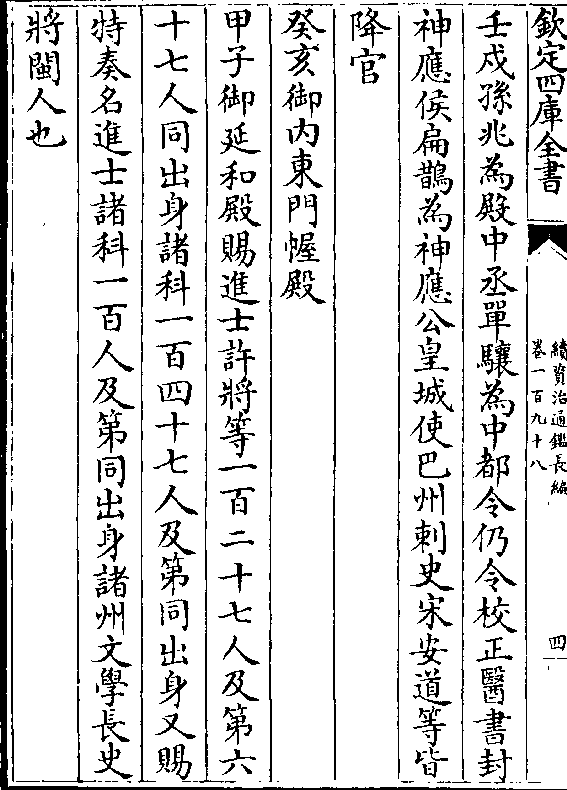 欽定四庫全書
續資治通鑑長編
卷一百九十八
四
壬戌孫兆為殿中丞單驤為中都令仍令校正醫書封
神應侯扁鵲為神應公皇城使巴州刺史宋安道等皆
降官
癸亥御内東門幄殿
甲子御延和殿賜進士許將等一百二十七人及第六
十七人同出身諸科一百四十七人及第同出身又賜
特奏名進士諸科一百人及第同出身諸州文學長史
將閩人也